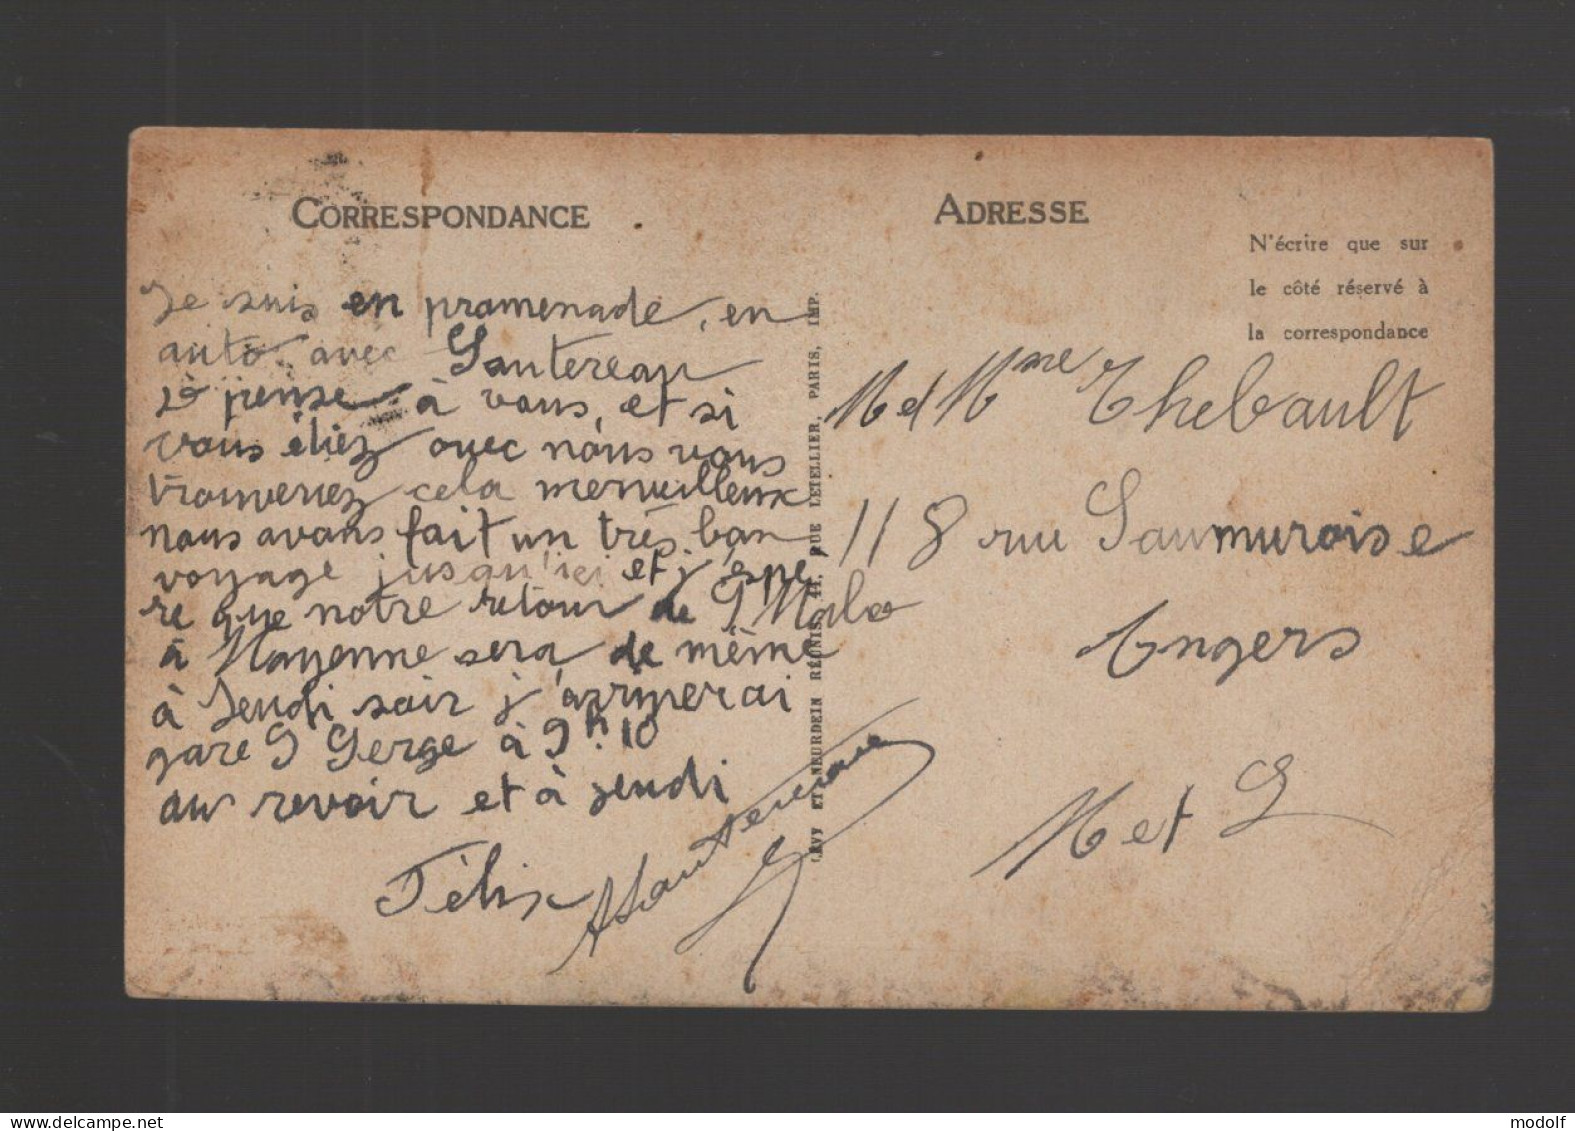 CORRESPONDANCE
Je suis en promenade, en
auto avec Sautereau
je pense à vous et si
vous étiez avec nous vous
trouveriez cela merveilleux
nous avons fait un très bon
voyage jusqu'ici et j'espè
re que notre retour de St Malo
à Mayenne sera de même
à Jeudi soir j'arriverai
gare St Serge à 9h.10
au revoir et à jeudi
Félix
LÉVY ET NEURDEIN RÉUNIS, 44, RUE LETELLIER, PARIS, IMP.
ADRESSE
N'écrire que sur
le côté réservé à
la correspondance
M et Mme Thebault
118 rue Saumuroise
Angers
M et L
www.delcampe.net
modolf